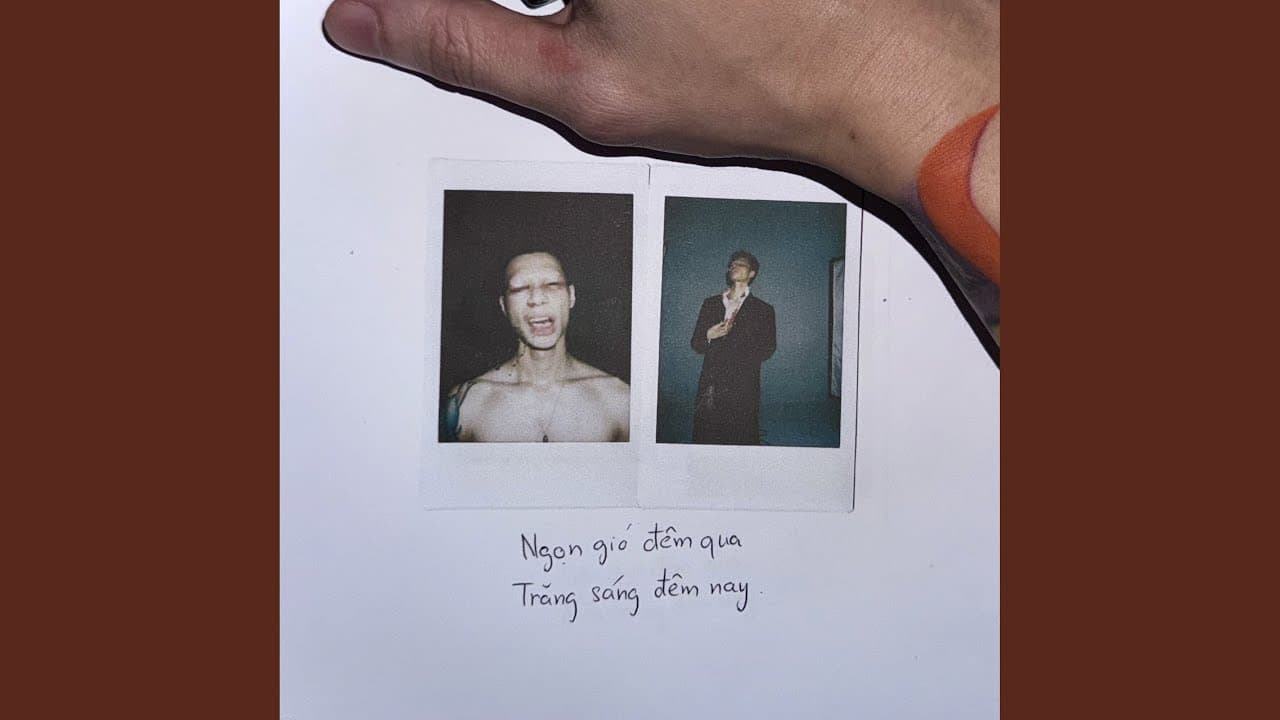 Ngọn gió đêm qua
Trăng sáng đêm nay.